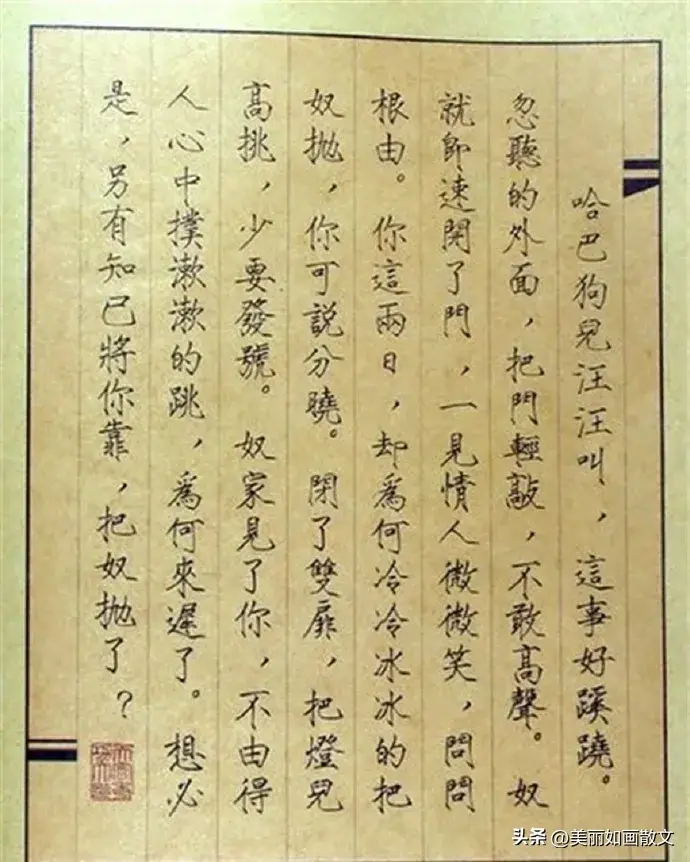 哈巴狗兒汪汪叫，這事好蹊蹺。
忽聽的外面，把門輕敲，不敢高聲。奴
就即速開了門，一見情人微微笑，問問
根由。你這兩日，却為何冷冷冰冰的把
奴抛，你可説分曉。閉了雙扉，把燈兒
高挑，少要發號。奴家見了你，不由得
人心中撲漱漱的跳，為何來遲了。想必
是，另有知已將你靠，把奴抛了？
头条 @美丽如画散文